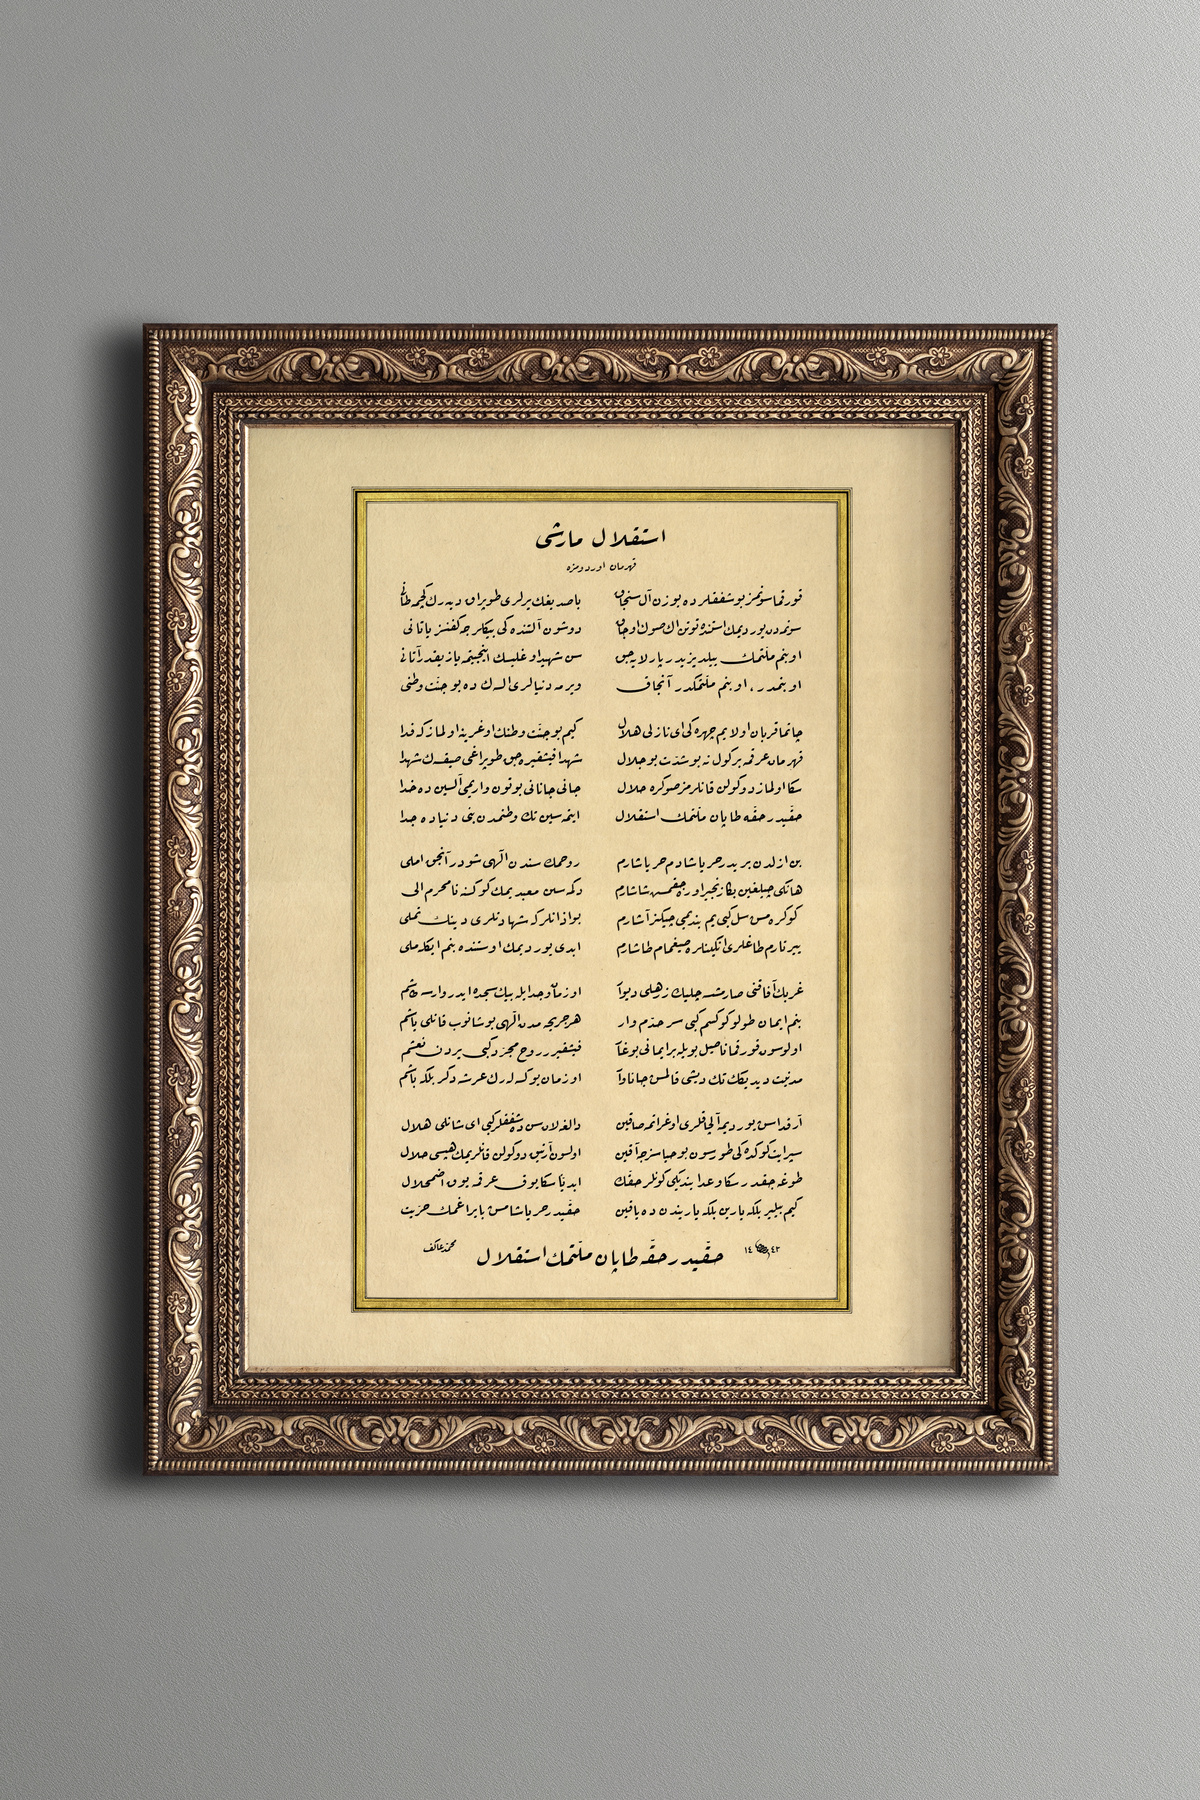 استقلال مارشی
قهرمان اوردومزه
قورقما سونمز بو شفقلرده یوزن آل سنجاق
سونمه‌دن یوردیمك استنده توتن اك صوك اوجاق
او بنم ملتمك ییلدیزیدر پارلایه‌جق
او بنمدر، او بنم ملتمكدر آنجاق
چاتما قربان اولایم چهره‌كی ای نازلی هلال
قهرمان عرقمه بر كول نه بو شدت بو جلال
سكا اولماز دوكولن قانلرمز صوكره حلال
حقیدر حقه طاپان ملتمك استقلال
بن ازلدن بریدر حر یاشادم حر یاشارم
هانكی چیلغین بكا زنجیر اوره‌جقمش شاشارم
كوكره‌مش سل كبی یم بندیمی چیكنر آشارم
ییرتارم طاغلری انكینلره صیغمام طاشارم
غربك آفاقنی صارمشسه چلیك زرهلی دیوار
بنم ایمان طولو كوكسم كبی سرحدم وار
اولوسون قورقما ناصیل بویله بر ایمانی بوغار
مدنیت دیدیكك تك دیشی قالمش جاناوار
آرقداش یوردیمه آلچاقلری اوغراتمه صاقین
سپر ایت كوكده‌كی طورسون بو حیاسزجه آقین
طوغه‌جقدر سكا وعد ایتدیكی كونلر حقك
كیم بیلیر بلكه یارین بلكه یاریندن ده یاقین
باصدیغك یرلری طوپراق دیه‌رك كچمه طانی
دوشون آلتنده‌كی بیكلرجه كفنسز یاتانی
سن شهید اوغلیسك اینجیتمه یازیقدر آتانی
ویرمه دنیالری السه‌ك ده بو جنت وطنی
كیم بو جنت وطنك اوغرینه اولماز كه فدا
شهدا فیشقیره‌جق طوپراغی صیقسه‌ك شهدا
جانی جانانی بوتون واریمی آلسین ده خدا
ایتمه‌سین تك وطنمدن بنی دنیاده جدا
روحمك سندن الهی شودر آنجق املی
دكمه‌سین معبدیمك كوكسنه نامحرم الی
بو اذانلر كه شهادتلری دینك تملی
ابدی یوردیمك اوستنده بنم ایكله‌ملی
او زمان وجد ایله بیك سجده ایدر وارسه طاشم
هر جریحه‌مدن الهی بوشانوب قانلی یاشم
فیشقیرر روح مجرد كبی یردن نعشم
او زمان یوكسه‌له‌رك عرشه دكر بلكه باشم
دالغه‌لان سن ده شفقلر كبی ای شانلی هلال
اولسون آرتیق دوكولن قانلریمك هپسی حلال
ابدیا سكا یوق عرقمه یوق اضمحلال
حقیدر حر یاشامش بایراغمك حریت
حقیدر حقه طاپان ملتمك استقلال
محمد عاكف
١٤٤٣